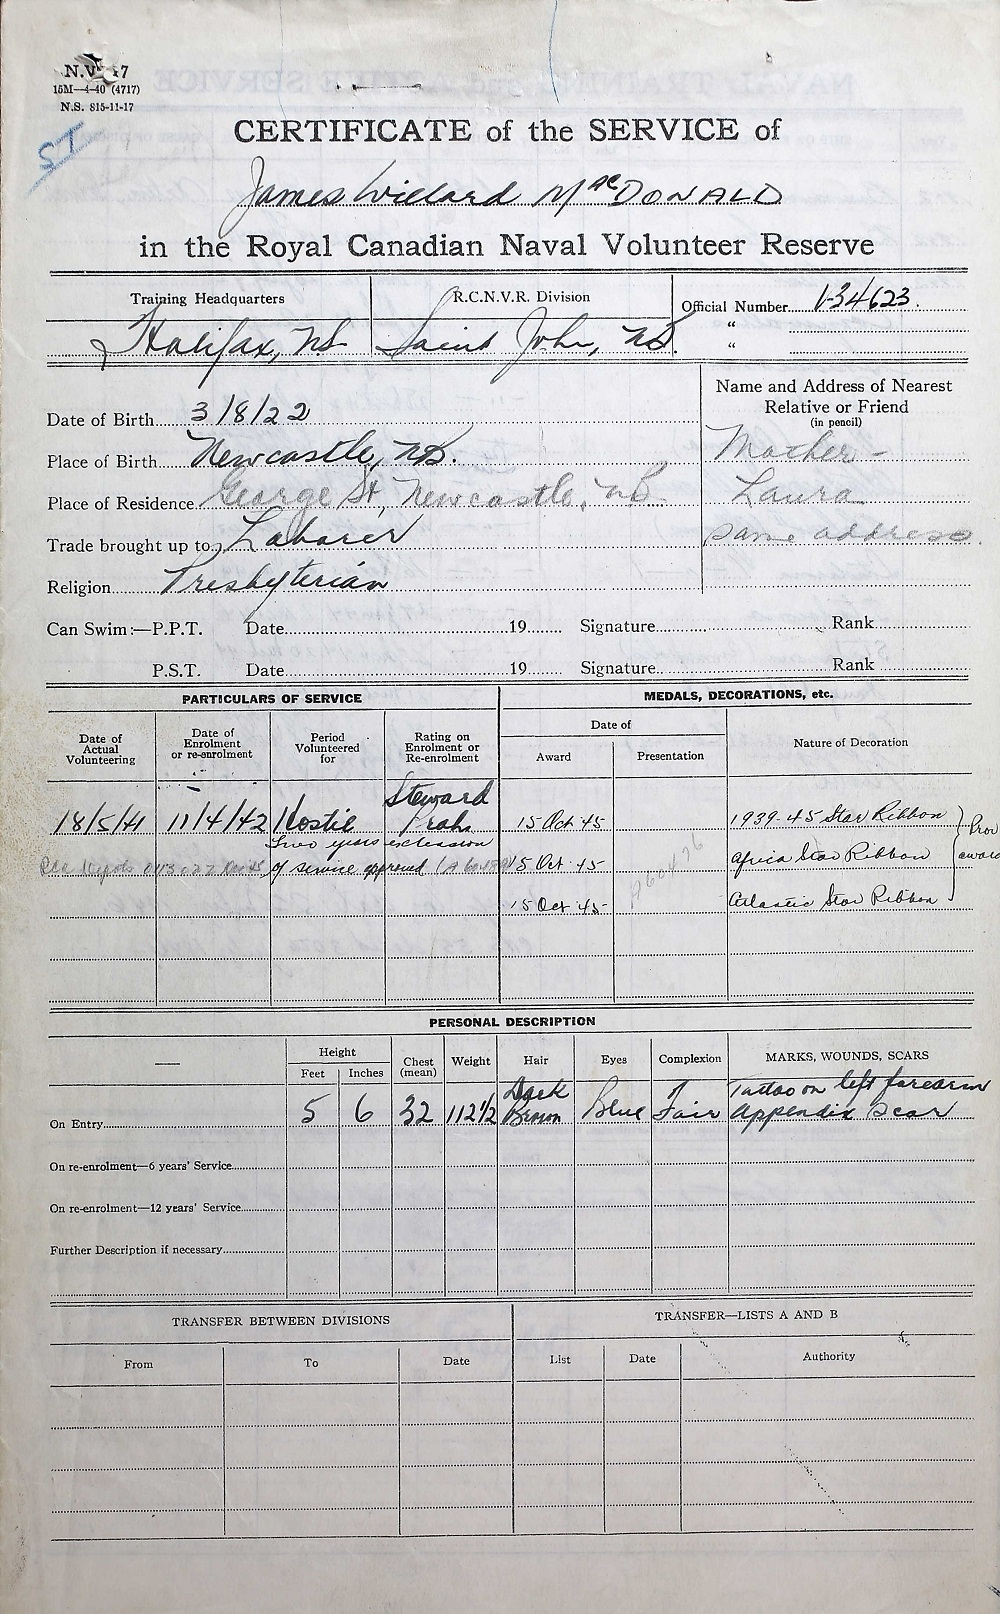 N.V. 17
15M—4-40 (4717)
N.S. 815-11-17
CERTIFICATE of the SERVICE of
James Willard MacDONALD
in the Royal Canadian Naval Volunteer Reserve
Training Headquarters R.C.N.V.R. Division Official Number V-34623.
Halifax, NS Saint John, NB. "
"
Name and Address of Nearest
Relative or Friend
(in pencil)
Date of Birth 3/8/22
Place of Birth Newcastle, NB. Mother -
Place of Residence George St, Newcastle, NB Laura
Trade brought up to Laborer same address.
Religion Presbyterian
Can Swim:—P.P.T. Date 19 Signature Rank
P.S.T. Date 19 Signature Rank
PARTICULARS OF SERVICE MEDALS, DECORATIONS, etc.
Date of Actual Volunteering
Date of Enrolment or re-enrolment
Period Volunteered for
Rating on Enrolment or Re-enrolment
Date of
Award Presentation
Nature of Decoration
18/5/41 11/4/42 Hostil Steward Proba 15 Oct 45 1939-45 Star Ribbon
Two years extension
of service approved 15 Oct. 45 Africa Star Ribbon
15 Oct 45 Atlantic Star Ribbon
award
PERSONAL DESCRIPTION
— Height Chest (mean) Weight Hair Eyes Complexion MARKS, WOUNDS, SCARS
Feet Inches
On Entry 5 6 32 112 1/2 Dark Brown Blue Fair Tattoo on left forearm
Appendix scar
On re-enrolment—6 years' Service
On re-enrolment—12 years' Service
Further Description if necessary
TRANSFER BETWEEN DIVISIONS TRANSFER—LISTS A AND B
From To Date List Date Authority